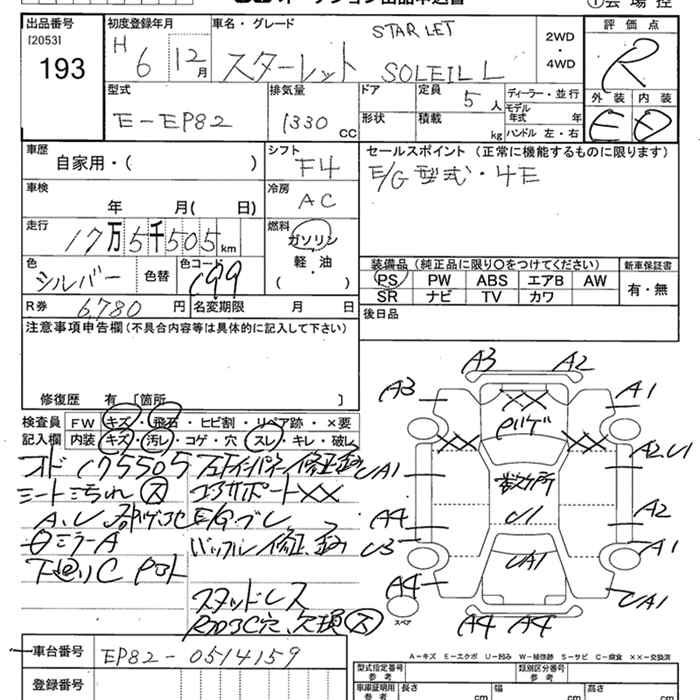 出品番号
[2053]
193
初度登録年月
H 6 12月
車名・グレード
STARLET
スターレット SOLEIL L
2WD
・
4WD
評価点
R
外装 内装
E D
型式
E-EP82
排気量
1330 CC
ドア
形状
定員
5 人
積載
kg
ディーラー・並行
モデル
年式 年
ハンドル 左・右
車歴
自家用・( )
シフト
F4
セールスポイント (正常に機能するものに限ります)
E/G型式・4E
車検
年 月( 日)
冷房
AC
走行
17万5千505km
燃料
ガソリン
軽・油
( )
色
シルバー
色替
色コード
199
装備品 (純正品に限り○をつけてください)
PS PW ABS エアB AW
SR ナビ TV カワ
新車保証書
有・無
R券 6,780 円
名変期限 月 日
後日品
注意事項申告欄 (不具合内容等は具体的に記入して下さい)
修復歴 有 [箇所 ]
検査員
記入欄
FW キズ・飛石・ヒビ割・リペア跡・×要
内装 キズ・汚れ・コゲ・穴 スレ・キレ・破レ
オド175505
シート汚れ ス
コアサポートXX
E/Gブレ
ミラーA
下廻りC
スタッドレス
A3 A2
A3 A1
XX
XX XX
UA1 A2,U1
数ケ所
U1
A4 A2
U3 A1
UA1
A4 UA1
A4 A4
スペア
A-キズ E-エクボ U-凹み W-補修跡 S-サビ C-腐食 ××-交換済
車台番号 EP82-0514159
登録番号
型式指定番号
参考
類別区分番号
参考
車庫証明用
参考
長さ cm
幅 cm
高さ cm